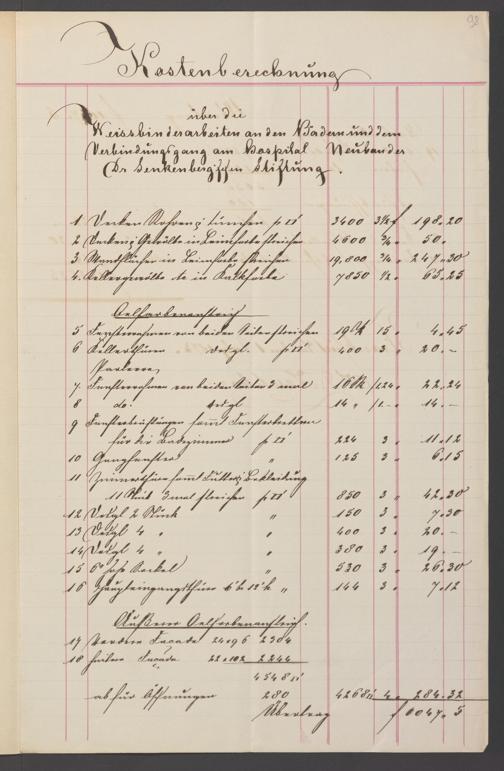 92
Kostenberechnung
über die
Weissbinderarbeiten an den Bädern und dem
Verbindungsgang am Hospital Neubau der
Dr Senkenberg'schen Stiftung.
1 Decken Rohrung tünchen p □' 3400 3½ f 198.20
2 Decken Gewölbe in Leimfarbe streichen 4000 ¾ " 50.
3 Wandflächen in Leimfarbe streichen 19,800 ¾ " 247.30
4. Kellergewölbe do in Kalkfarbe 7850 ½ " 65.25
Oelfarbenanstrich
5 Fensterrahmen von beiden Seiten streichen 19 15 " 4.45
6 Kellerthüren desgl. p □' 400 3 " 20.–
Parterre
7 Fensterrahmen von beiden Seiten 3 mal 16 1/24 " 22.24
8 do. desgl 14 " 1.– " 14.–
9 Fensterbrüstungen samt Fensterbretter
für die Badezimmer p □' 224 3 " 11.12
10 Gangfenster " 125 3 " 6.15
11 Zimmerthüre samt Futter & Bekleidung
11 Stück 3 mal streichen p □' 850 3 " 42.30
12 Desgl 2 Stück " 150 3 " 7.30
13 Desgl 4 " " 400 3 " 20.–
14 Desgl 4 " " 380 3 " 19.–
15 hohe Sockel " 530 3 " 26.30
16 Haupteingangsthüre " 144 3 " 7.12
Äußerer Oelfarbenanstrich.
17 Vordere Facade 24×96 2304
18 hintere Façade 22×102 2244
4548 □'
ab für Öffnungen 280 4268 □' 4 " 284.32
Übertrag f 1047.5